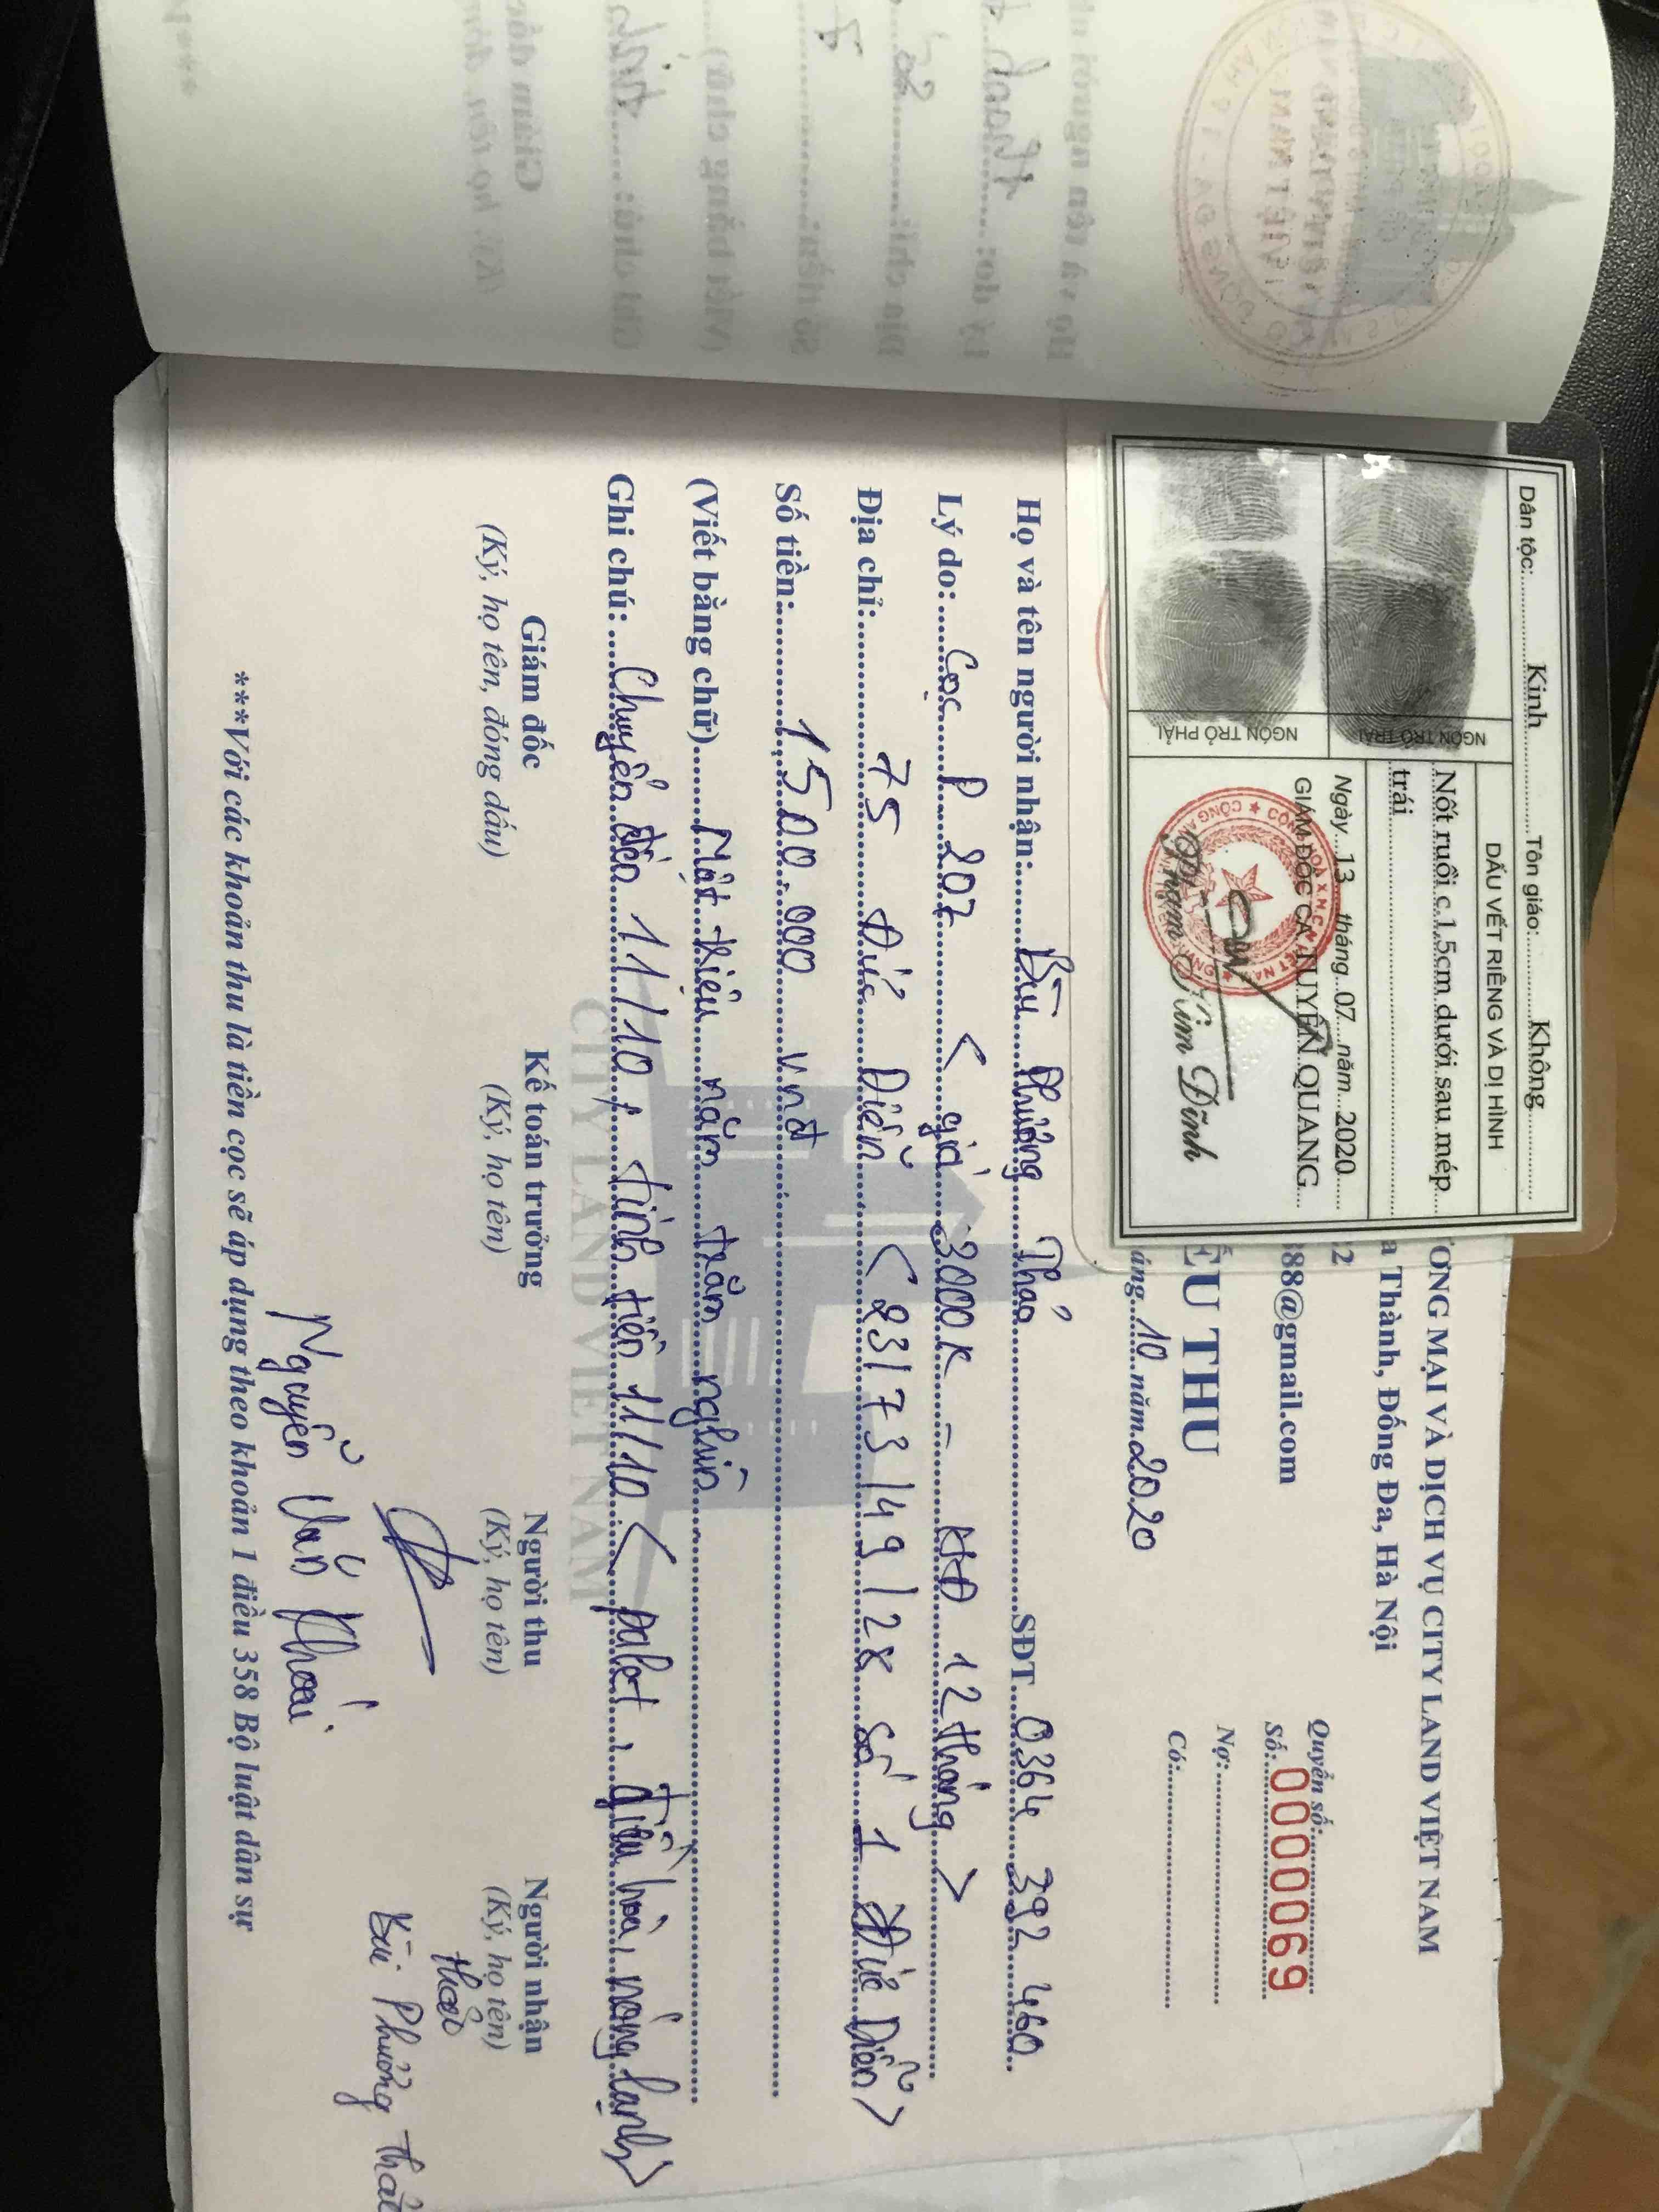 Dân tộc: Kinh Tôn giáo: Không
DẤU VẾT RIÊNG VÀ DỊ HÌNH
Nốt ruồi c.1,5cm dưới sau mép
trái
Ngày 13 tháng 07 năm 2020
GIÁM ĐỐC CA TUYÊN QUANG
Phạm Kim Đĩnh
NGÓN TRỎ TRÁI
NGÓN TRỎ PHẢI
ƠNG MẠI VÀ DỊCH VỤ CITY LAND VIỆT NAM
a Thành, Đống Đa, Hà Nội
2
88@gmail.com
Quyển số:
Số: 0000069
ẾU THU
Nợ:
áng 10 năm 2020
Có:
Họ và tên người nhận: Bùi Phương Thảo SĐT 0364 392 460
Lý do: Cọc P 202 < giá 3000K - HĐ 12 tháng >
Địa chỉ: 75 Đức Diễn < 23/73/49/2x số 1 Đức Diễn >
Số tiền: 1500.000 vnđ
(Viết bằng chữ) Một triệu năm trăm nghìn
Ghi chú: Chuyển đến 11/10, tính tiền 11/10 < palet, điều hòa, nóng lạnh >
CITY LAND VIET NAM
Giám đốc Kế toán trưởng Người thu Người nhận
(Ký, họ tên, đóng dấu) (Ký, họ tên) (Ký, họ tên) (Ký, họ tên)
thảo
Bùi Phương Thảo
Nguyễn Văn Khoái
***Với các khoản thu là tiền cọc sẽ áp dụng theo khoản 1 điều 358 Bộ luật dân sự